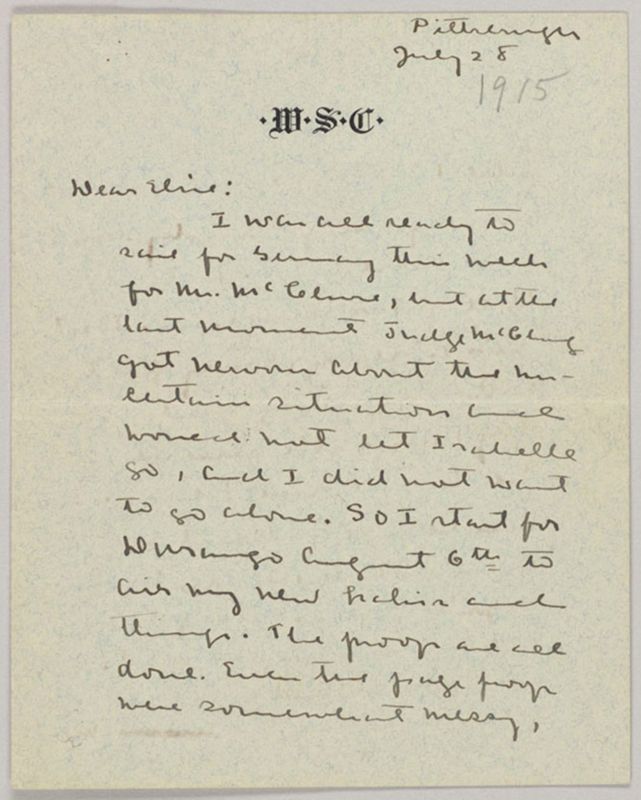 Pittsburgh
July 28
1915
·W·S·C·
Dear Elsie:
I was all ready to
sail for Germany this week
for Mr. McClure, but at the
last moment Judge McClung
got nervous about the un-
certain situation and
would not let Isabelle
go, and I did not want
to go alone. So I start for
Durango August 6th to
air my new habits and
things. The proofs are all
done. Even the page proofs
were somewhat messy,